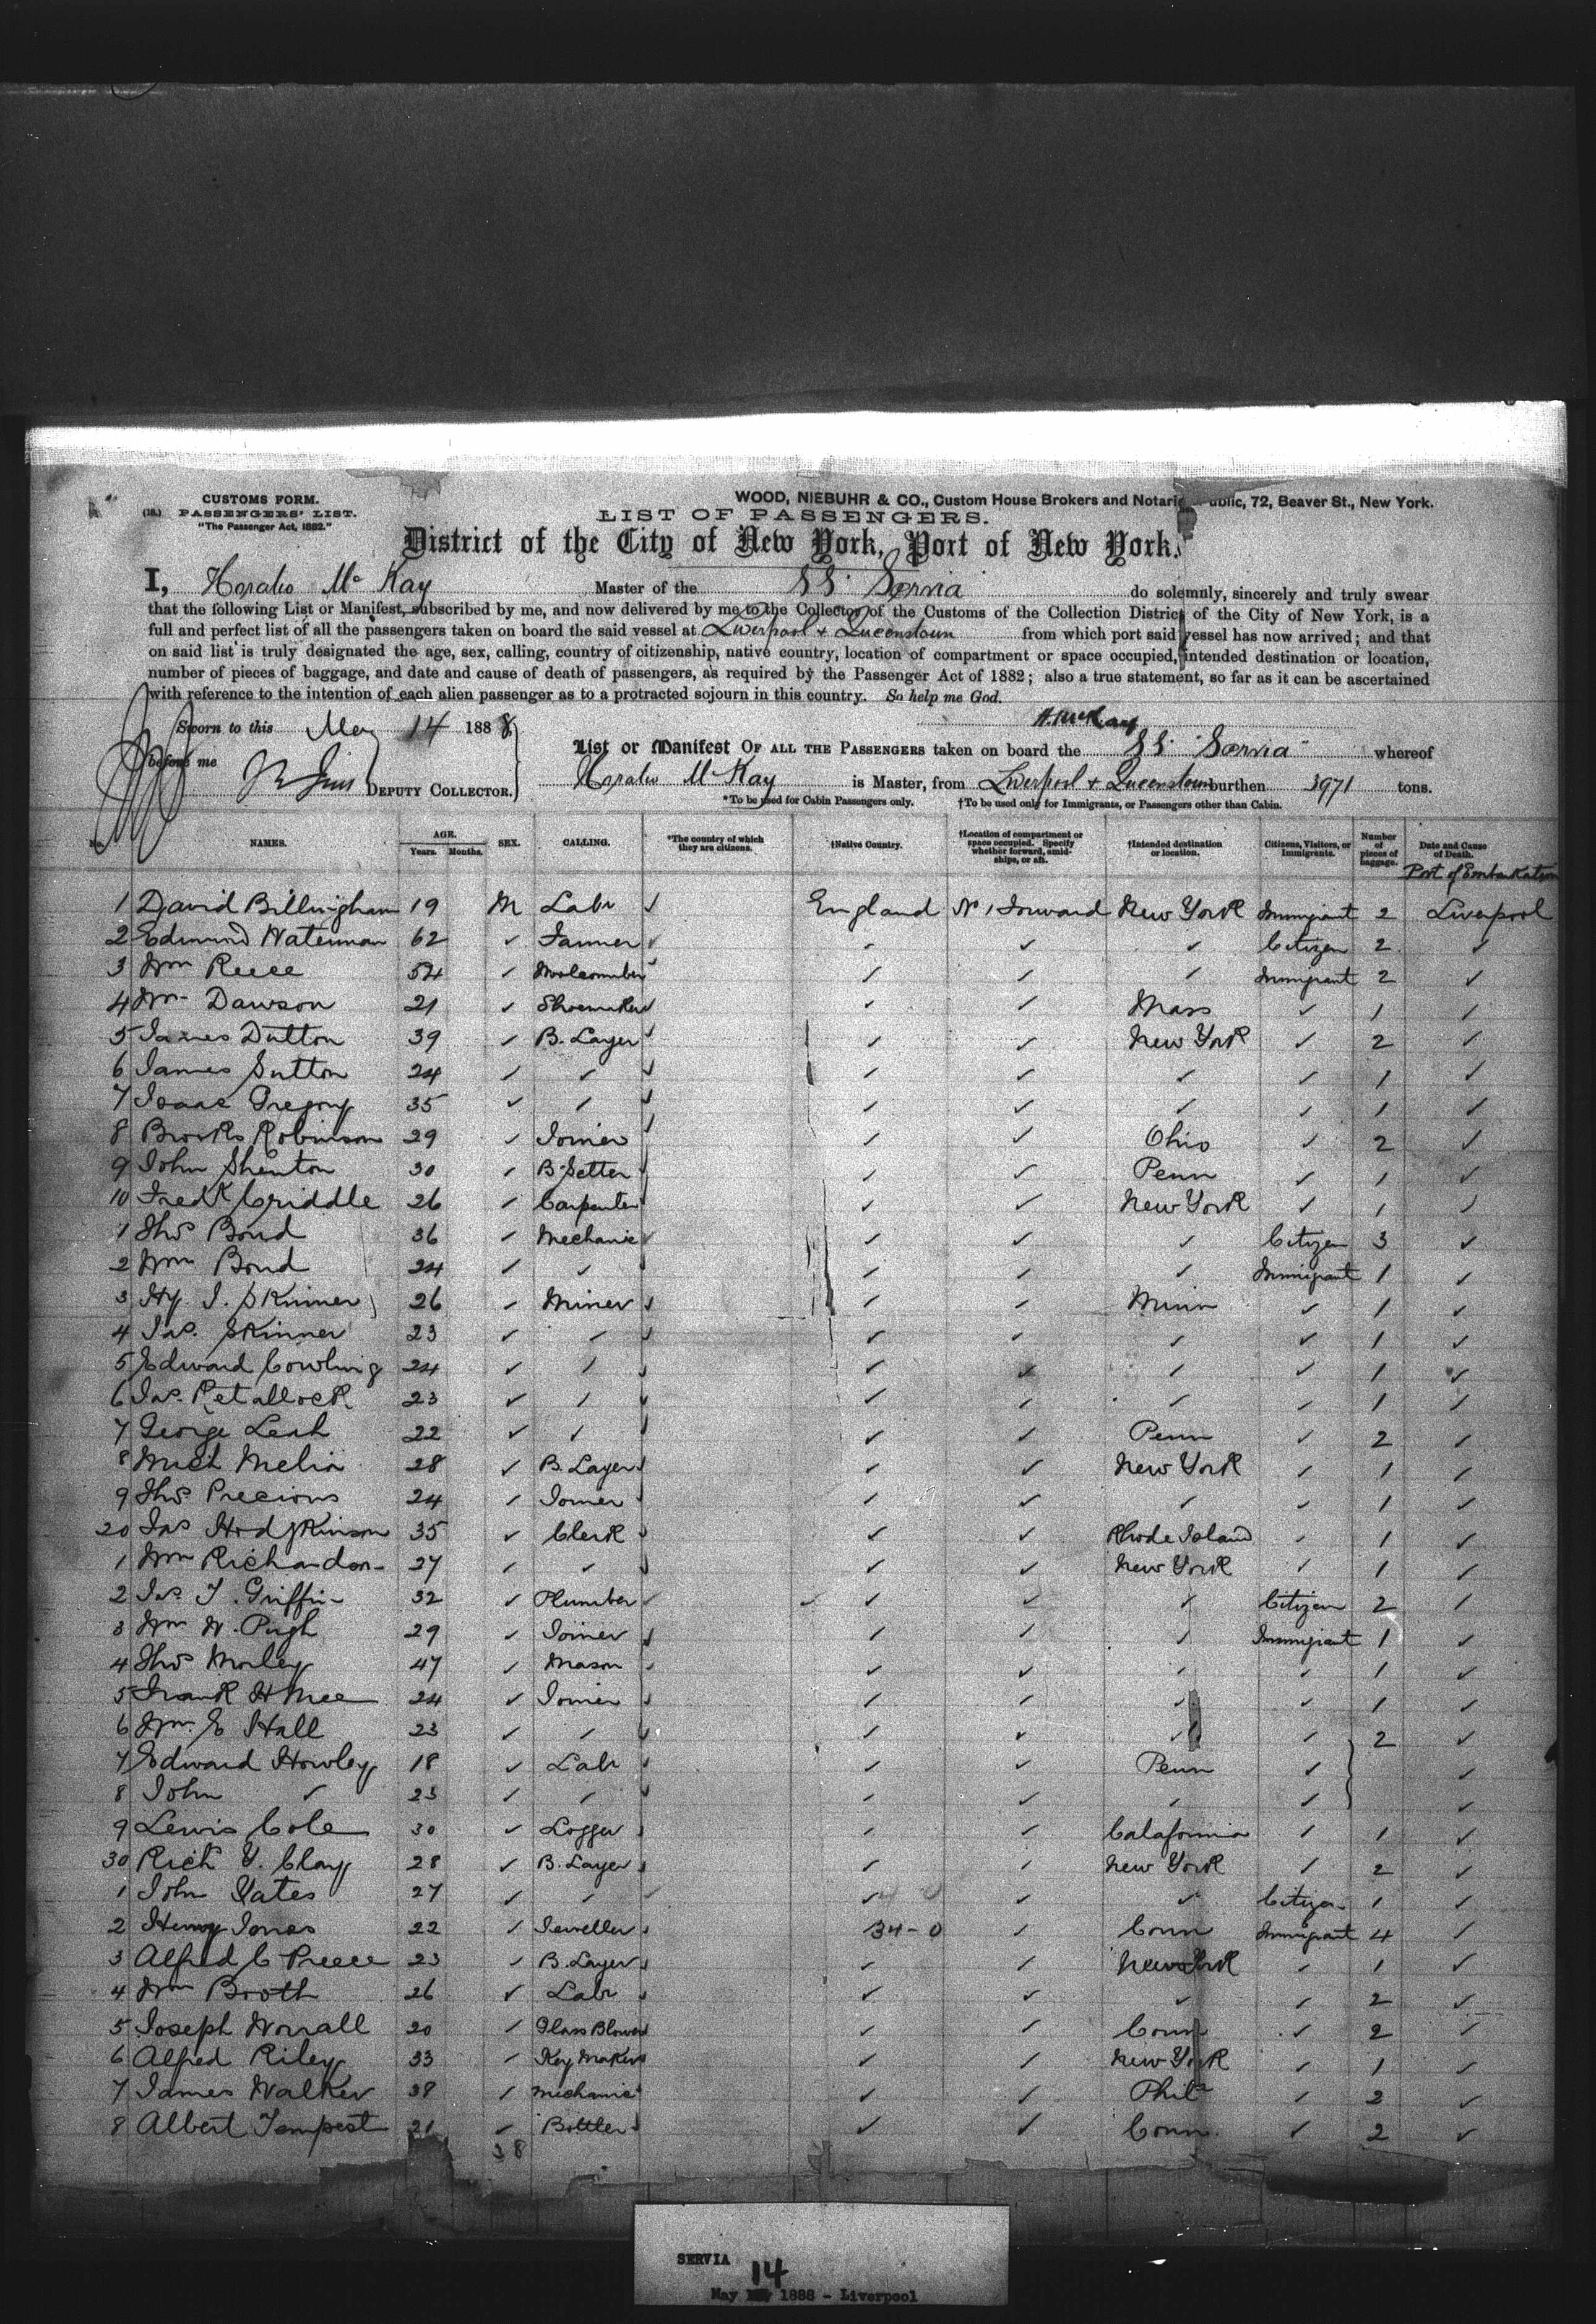 CUSTOMS FORM.
(18.) PASSENGERS' LIST.
"The Passenger Act, 1882."
WOOD, NIEBUHR & CO., Custom House Brokers and Notaries Public, 72, Beaver St., New York.
LIST OF PASSENGERS.
District of the City of New York, Port of New York.
I, Horatio McKay Master of the SS. Servia do solemnly, sincerely and truly swear
that the following List or Manifest, subscribed by me, and now delivered by me to the Collector of the Customs of the Collection District of the City of New York, is a
full and perfect list of all the passengers taken on board the said vessel at Liverpool & Queenstown from which port said vessel has now arrived; and that
on said list is truly designated the age, sex, calling, country of citizenship, native country, location of compartment or space occupied, intended destination or location,
number of pieces of baggage, and date and cause of death of passengers, as required by the Passenger Act of 1882; also a true statement, so far as it can be ascertained
with reference to the intention of each alien passenger as to a protracted sojourn in this country. So help me God.
H. McKay
Sworn to this May 14 1888
before me
DEPUTY COLLECTOR.
List or Manifest OF ALL THE PASSENGERS taken on board the SS "Servia" whereof
Horatio McKay is Master, from Liverpool & Queenstown burthen 3971 tons.
*To be used for Cabin Passengers only. †To be used only for Immigrants, or Passengers other than Cabin.
No. NAMES. AGE. Years. Months. SEX. CALLING. *The country of which they are citizens. †Native Country. †Location of compartment or space occupied. Specify whether forward, amidships, or aft. †Intended destination or location. Citizens, Visitors, or Immigrants. Number of pieces of baggage. Date and Cause of Death.
Port of Embarkation
1 David Billingham 19 M Labr ✓ England No 1 Forward New York Immigrant 2 Liverpool
2 Edmund Waterman 62 ✓ Farmer ✓ ✓ ✓ ✓ Citizen 2 ✓
3 Wm Reece 54 ✓ Woolcomber ✓ ✓ ✓ ✓ Immigrant 2 ✓
4 Wm Dawson 21 ✓ Shoemaker ✓ ✓ ✓ Mass ✓ 1 ✓
5 James Dutton 39 ✓ B. Layer ✓ ✓ ✓ New York ✓ 2 ✓
6 James Sutton 24 ✓ ✓ ✓ ✓ ✓ ✓ ✓ 1 ✓
7 Isaac Gregory 35 ✓ ✓ ✓ ✓ ✓ ✓ ✓ 1 ✓
8 Brooks Robinson 29 ✓ Joiner ✓ ✓ ✓ Ohio ✓ 2 ✓
9 John Shenton 30 ✓ B. Setter ✓ ✓ ✓ Penn ✓ 1 ✓
10 Fredk Criddle 26 ✓ Carpenter ✓ ✓ ✓ New York ✓ 1 ✓
1 Thos Bond 36 ✓ Mechanic ✓ ✓ ✓ ✓ Citizen 3 ✓
2 Wm Bond 24 ✓ ✓ ✓ ✓ ✓ Immigrant 1 ✓
3 Hy. J. Skinner 26 ✓ Miner ✓ ✓ ✓ Minn ✓ 1 ✓
4 Jas. Skinner 23 ✓ ✓ ✓ ✓ ✓ ✓ ✓ 1 ✓
5 Edward Cowling 24 ✓ ✓ ✓ ✓ ✓ ✓ ✓ 1 ✓
6 Jas. Retallock 23 ✓ ✓ ✓ ✓ ✓ ✓ ✓ 1 ✓
7 George Leah 22 ✓ ✓ ✓ ✓ ✓ Penn ✓ 2 ✓
8 Mich Melia 28 ✓ B. Layer ✓ ✓ ✓ New York ✓ 1 ✓
9 Thos Precious 24 ✓ Joiner ✓ ✓ ✓ ✓ ✓ 1 ✓
20 Jas Hodgkinson 35 ✓ Clerk ✓ ✓ ✓ Rhode Island ✓ 1 ✓
1 Wm Richardson 27 ✓ ✓ ✓ ✓ New York ✓ 1 ✓
2 Jas. T. Griffin 32 ✓ Plumber ✓ ✓ ✓ ✓ ✓ Citizen 2 ✓
3 Wm W. Pugh 29 ✓ Joiner ✓ ✓ ✓ ✓ Immigrant 1 ✓
4 Thos Morley 47 ✓ Mason ✓ ✓ ✓ ✓ ✓ 1 ✓
5 Frank H Mee 24 ✓ Joiner ✓ ✓ ✓ ✓ ✓ 1 ✓
6 Wm. E Hall 23 ✓ ✓ ✓ ✓ ✓ ✓ ✓ 2 ✓
7 Edward Howley 18 ✓ Labr ✓ ✓ Penn ✓ ✓
8 John ✓ 23 ✓ ✓ ✓ ✓ ✓ ✓ ✓ ✓
9 Lewis Cole 30 ✓ Logger ✓ ✓ ✓ Calafornia ✓ 1 ✓
30 Rich Y. Clay 28 ✓ B. Layer ✓ ✓ ✓ New York ✓ 2 ✓
1 John Yates 27 ✓ ✓ ✓ ✓ ✓ ✓ Citizen 1 ✓
2 Henry Jones 22 ✓ Jeweller ✓ 34-0 ✓ Conn Immigrant 4 ✓
3 Alfred C Preece 23 ✓ B. Layer ✓ ✓ ✓ New York ✓ 1 ✓
4 Wm Booth 26 ✓ Labr ✓ ✓ ✓ ✓ ✓ 2 ✓
5 Joseph Worrall 20 ✓ Glass Blower ✓ ✓ Conn ✓ 2 ✓
6 Alfred Riley 33 ✓ Key Maker ✓ ✓ New York ✓ 1 ✓
7 James Walker 38 ✓ Mechanic ✓ ✓ ✓ Phila ✓ 2 ✓
8 Albert Tempest 21 ✓ Bottler ✓ ✓ ✓ Conn. ✓ 2 ✓
38
SERVIA
14
May 1888 - Liverpool